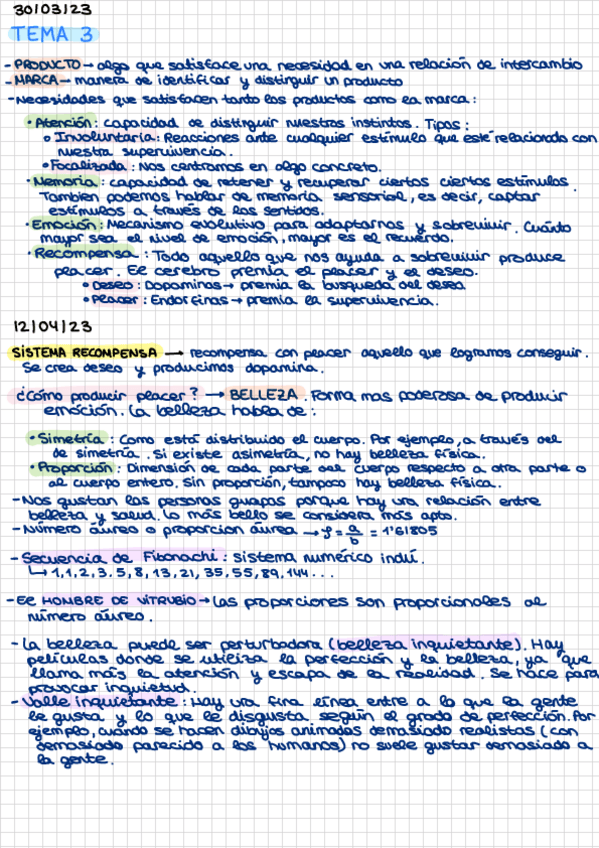 30/03/23
TEMA 3
- PRODUCTO → algo que satisface una necesidad en una relación de intercambio
- MARCA → manera de identificar y distinguir un producto
- Necesidades que satisfacen tanto los productos como la marca:
• Atención: capacidad de distinguir nuestros instintos. Tipos:
o Involuntaria: Reacciones ante cualquier estímulo que esté relacionado con
nuestra supervivencia.
• Focalizada: Nos centramos en algo concreto.
• Memoria: capacidad de retener y recuperar ciertos ciertos estímulos.
Tambien podemos hablar de memoria sensorial, es decir, captar
estímulos a través de los sentidos.
• Emoción: Mecanismo evolutivo para adaptarnos y sobrevivir. Cuánto
mayor sea el nivel de emoción, mayor es el recuerdo.
• Recompensa: Todo aquello que nos ayuda a sobrevivir produce
placer. El cerebro premia el placer y el deseo.
o Deseo: Dopaminas → premia la busqueda del deseo
o Placer: Endorfinas → premia la supervivencia.
12/04/23
SISTEMA RECOMPENSA → recompensa con placer aquello que logramos conseguir.
Se crea deseo y producimos dopamina.
¿Cómo producir placer? → BELLEZA. Forma mas poderosa de producir
emoción. La belleza habla de:
• Simetría: Como está distribuido el cuerpo. Por ejemplo, a través del
de simetría. Si existe asimetría, no hay belleza física.
• Proporción: Dimensión de cada parte del cuerpo respecto a otra parte o
al cuerpo entero. Sin proporción, tampoco hay belleza física.
- Nos gustan las personas guapas porque hay una relación entre
belleza y salud. Lo más bello se considera más apto.
- Número áureo o proporcion áurea → φ = a/b = 1'61805
- Secuencia de Fibonachi: sistema numérico indú.
↳ 1, 1, 2, 3, 5, 8, 13, 21, 35, 55, 89, 144...
- El HOMBRE DE VITRUBIO → Las proporciones son proporcionales al
número áureo.
- La belleza puede ser perturbadora (belleza inquietante). Hay
películas donde se utiliza la perfección y la belleza, ya que
llama más la atención y escapa de la realidad. Se hace para
provocar inquietud.
- Valle inquietante: Hay una fina línea entre a lo que la gente
le gusta y lo que le disgusta según el grado de perfección. Por
ejemplo, cuando se hacen dibujos animados demasiado realistas (con
demasiado parecido a los humanos) no suele gustar demasiado a
la gente.